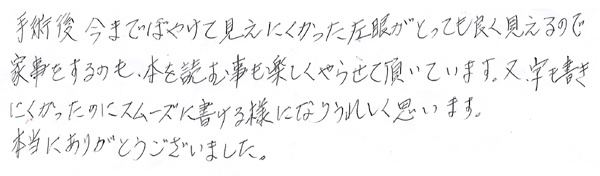 手術後 今までぼやけて見えにくかった左眼がとっても良く見えるので
家事をするのも、本を読む事も楽しくやらせて頂いています。又、字も書き
にくかったのにスムーズに書ける様になりうれしく思います。
本当にありがとうございました。